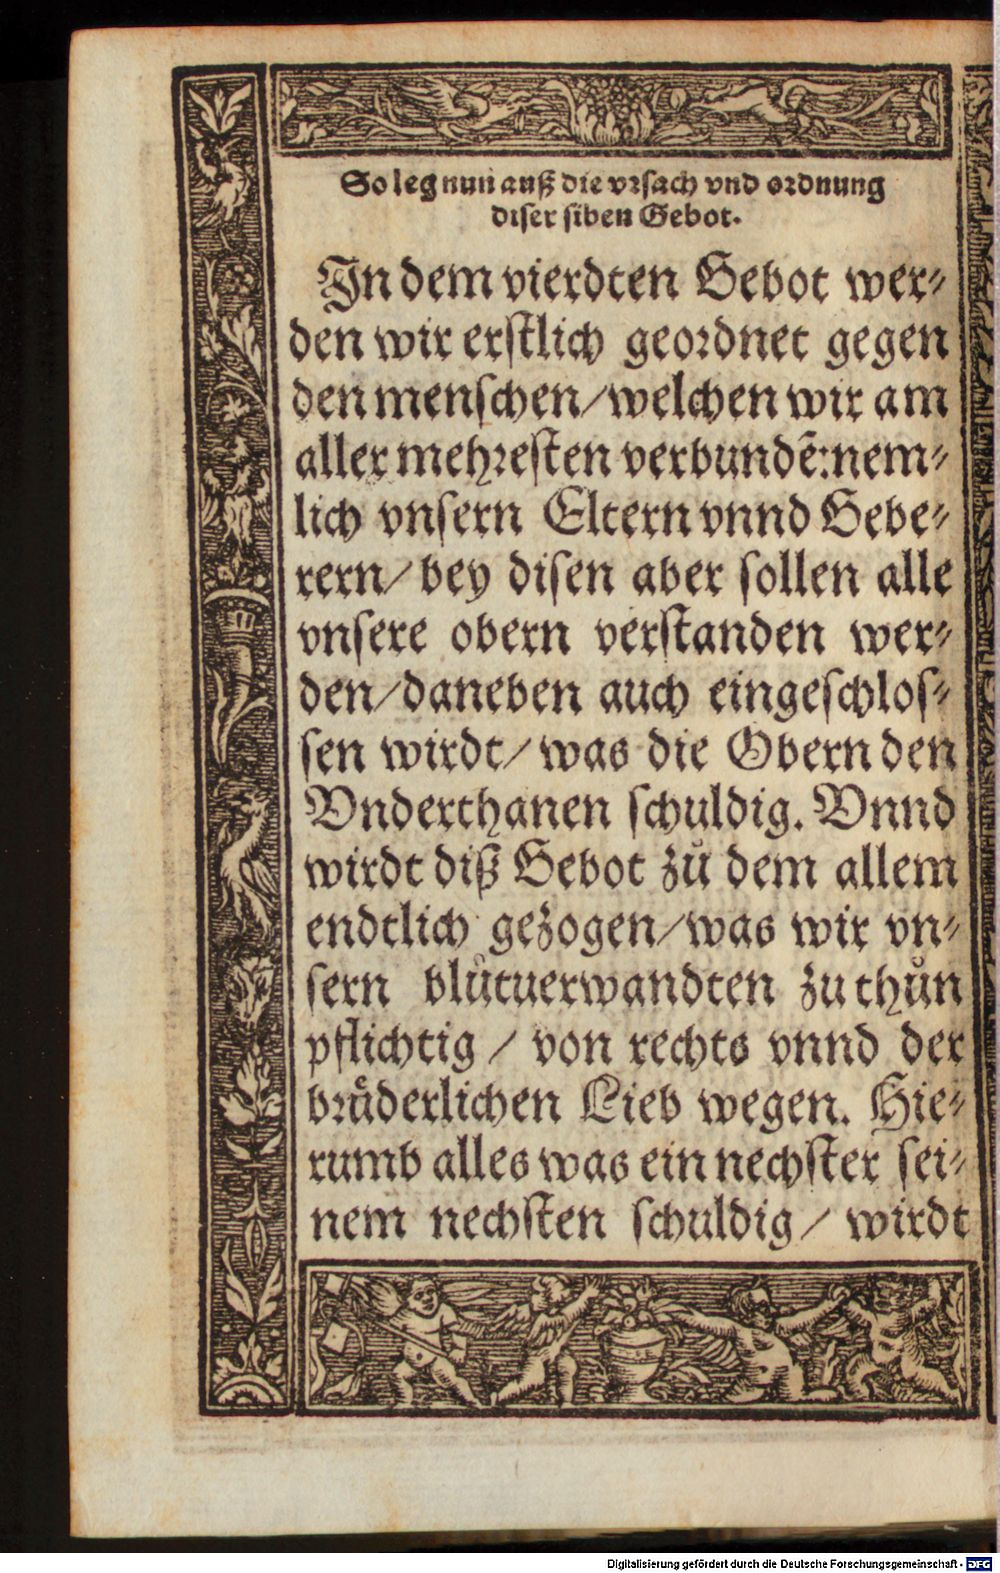 So leg nun auß die vrsach vnd ordnung
diser siben Gebot.
In dem vierdten Gebot wer⸗
den wir erstlich geordnet gegen
den menschen/welchen wir am
aller mehresten verbundẽ:nem⸗
lich vnsern Eltern vnnd Gebe⸗
rern/ bey disen aber sollen alle
vnsere obern verstanden wer⸗
den/daneben auch eingeschlos⸗
sen wirdt/ was die Obern den
Vnderthanen schuldig. Vnnd
wirdt diß Gebot zů dem allem
endtlich gezogen/was wir vn⸗
sern blůtuerwandten zu thůn
pflichtig / von rechts vnnd der
bruͤderlichen Lieb wegen. Hie⸗
rumb alles was ein nechster sei⸗
nem nechsten schuldig/ wirdt
Digitalisierung gefördert durch die Deutsche Forschungsgemeinschaft - DFG